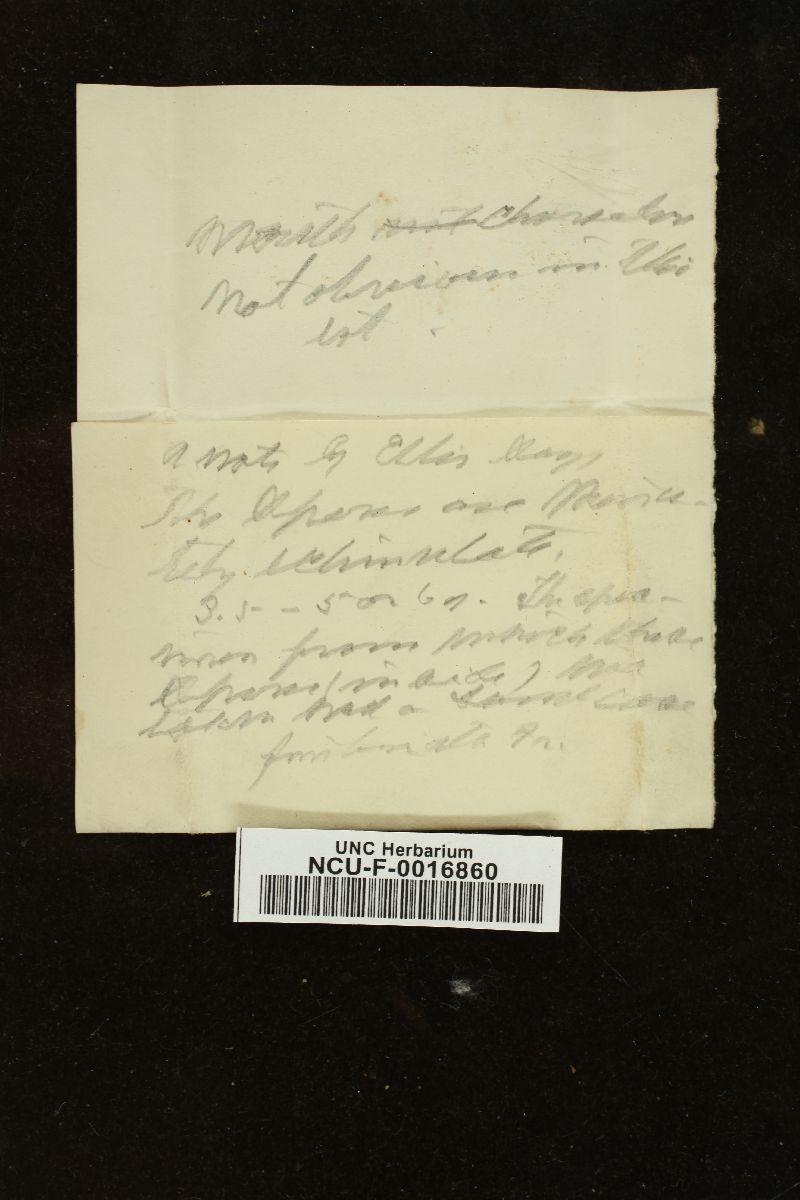 Mouth not character
not obvious in this
lot.
A note by Ellis says
The spores are minu-
tely echinulate.
3.5 - 5 or 6 µ. The spec-
imen from which these
spores (in asci) were
taken had a
UNC Herbarium
NCU-F-0016860